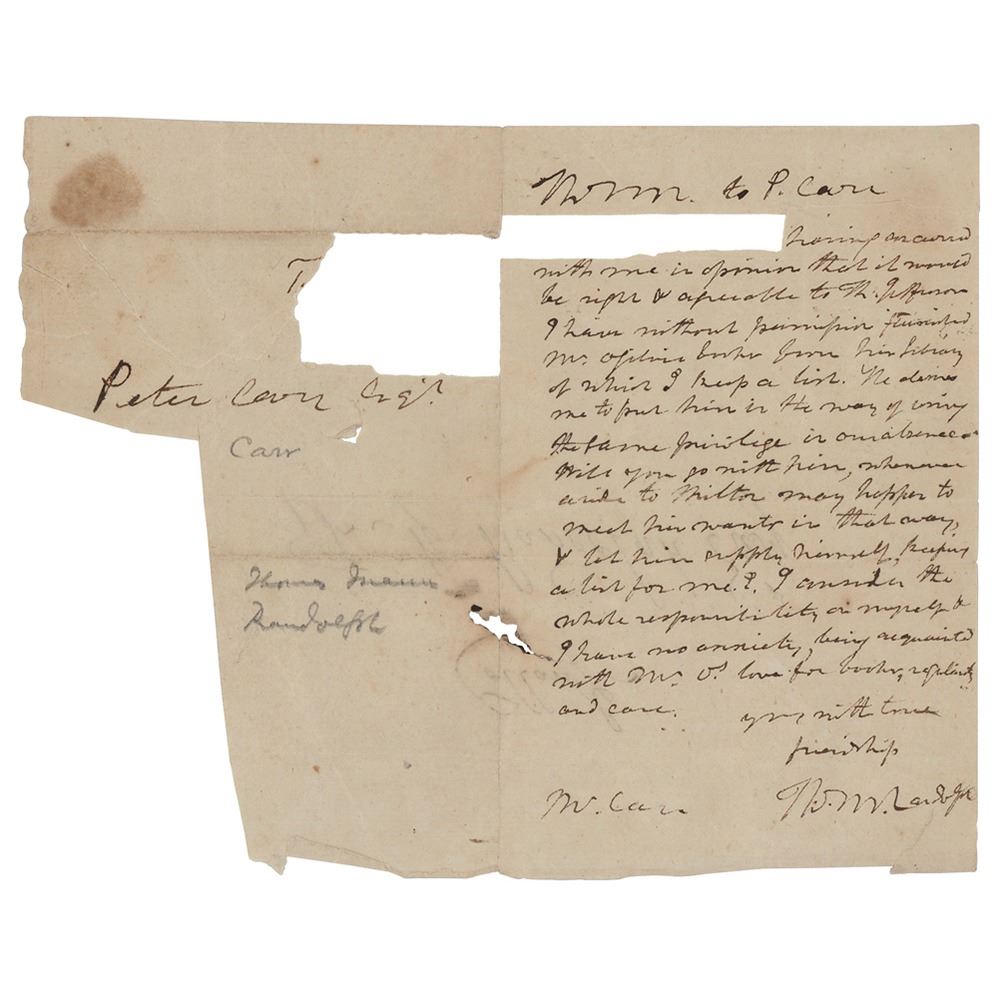 T.
Peter Carr Esqr.
Carr
Thomas Mann
Randolph
Th: M R. to P. Carr
having concurred
with me in opinion that it would
be right & agreeable to Mr. Jefferson
I have without permission furnished
Mr. Ogilvie books from his library
of which I keep a list. He desires
me to put him in the way of using
the same privilege in our absence.
Will you go with him, whenever
a ride to Milton may happen to
meet his wants in that way,
& let him supply himself, keeping
a list for me? I consider the
whole responsibility on myself &
I have no anxiety, being acquainted
with Mr. O's love for books, regularity
and care.
yrs with true
friendship
Th: M. Randolph
Mr. Carr